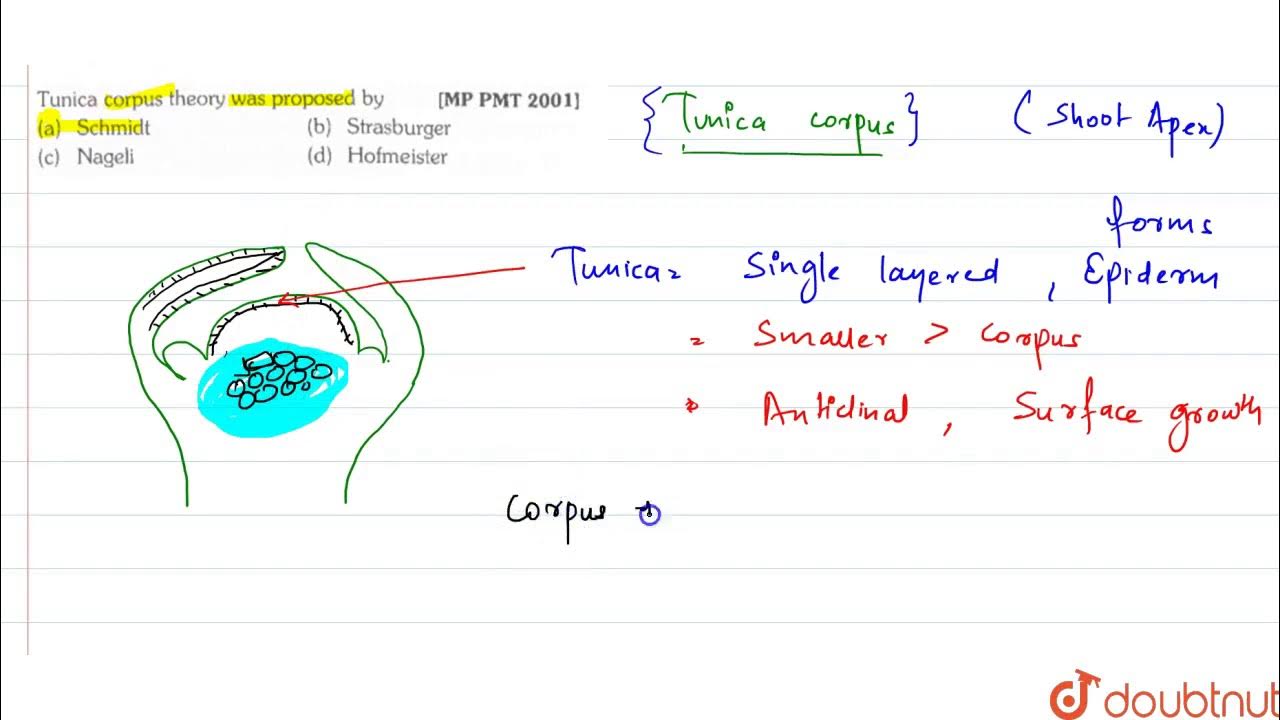 Tunica corpus theory was proposed by [MP PMT 2001]
(a) Schmidt (b) Strasburger
(c) Nageli (d) Hofmeister
{Tunica corpus} (Shoot Apex)
forms
Tunica = Single layered , Epiderm
= Smaller > corpus
Anticlinal , Surface growth
Corpus
doubtnut